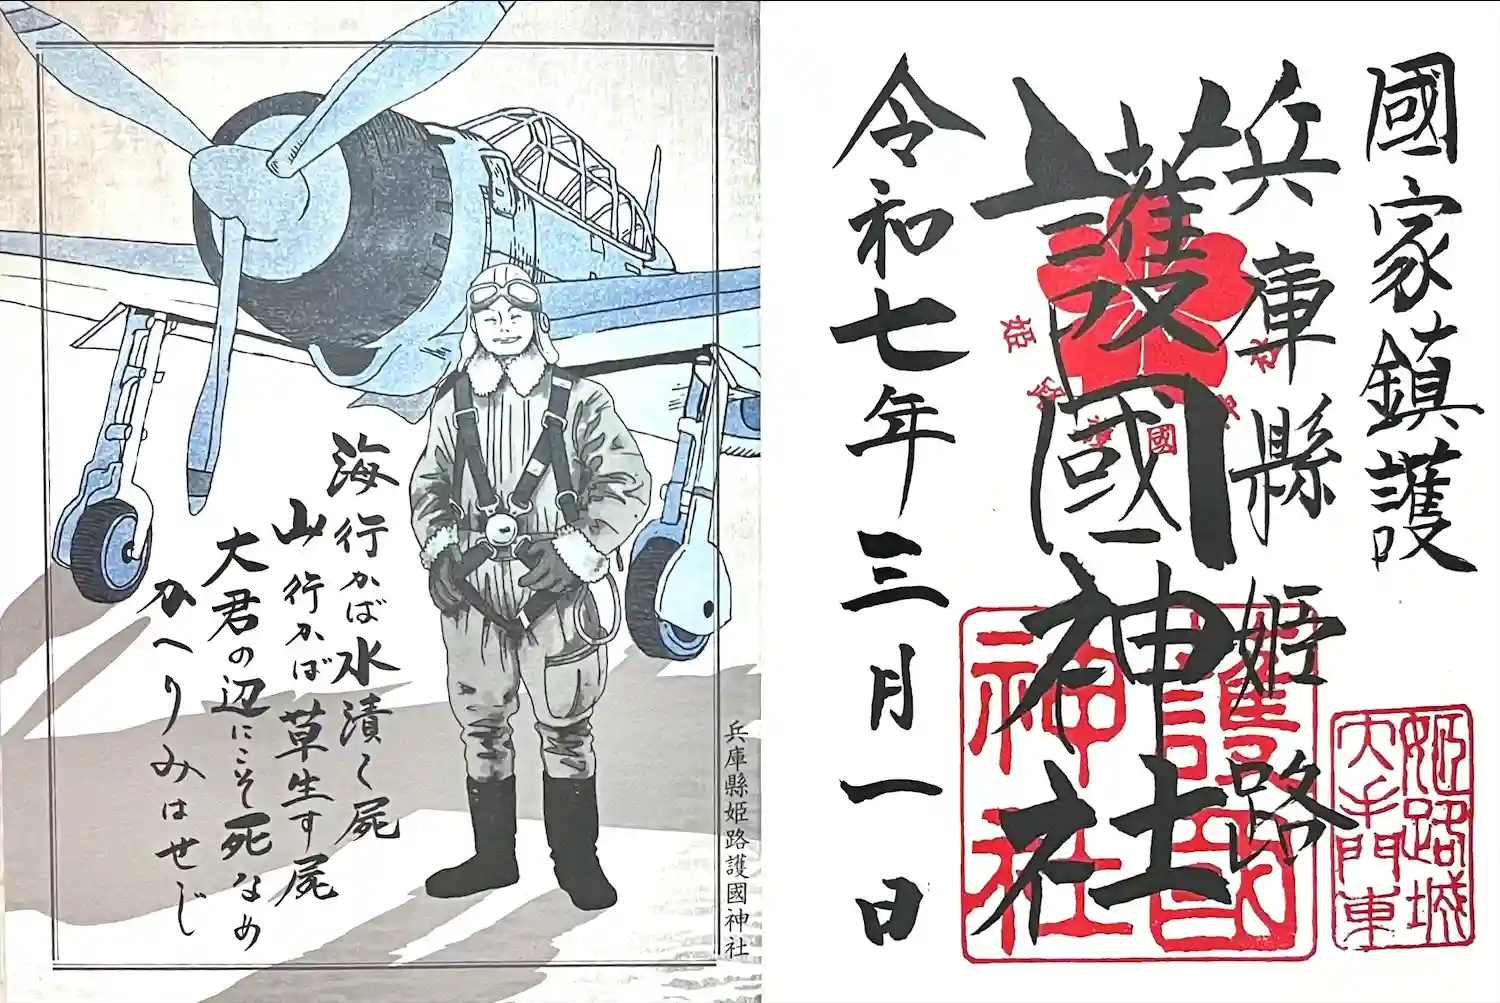 國家鎮護
兵庫縣姫路
護國神社
令和七年三月一日
護國
神社
姫路城
大手門東
兵庫縣姫路護國神社
海行かば水漬く屍
山行かば草生す屍
大君の辺にこそ死なめ
かへりみはせじ